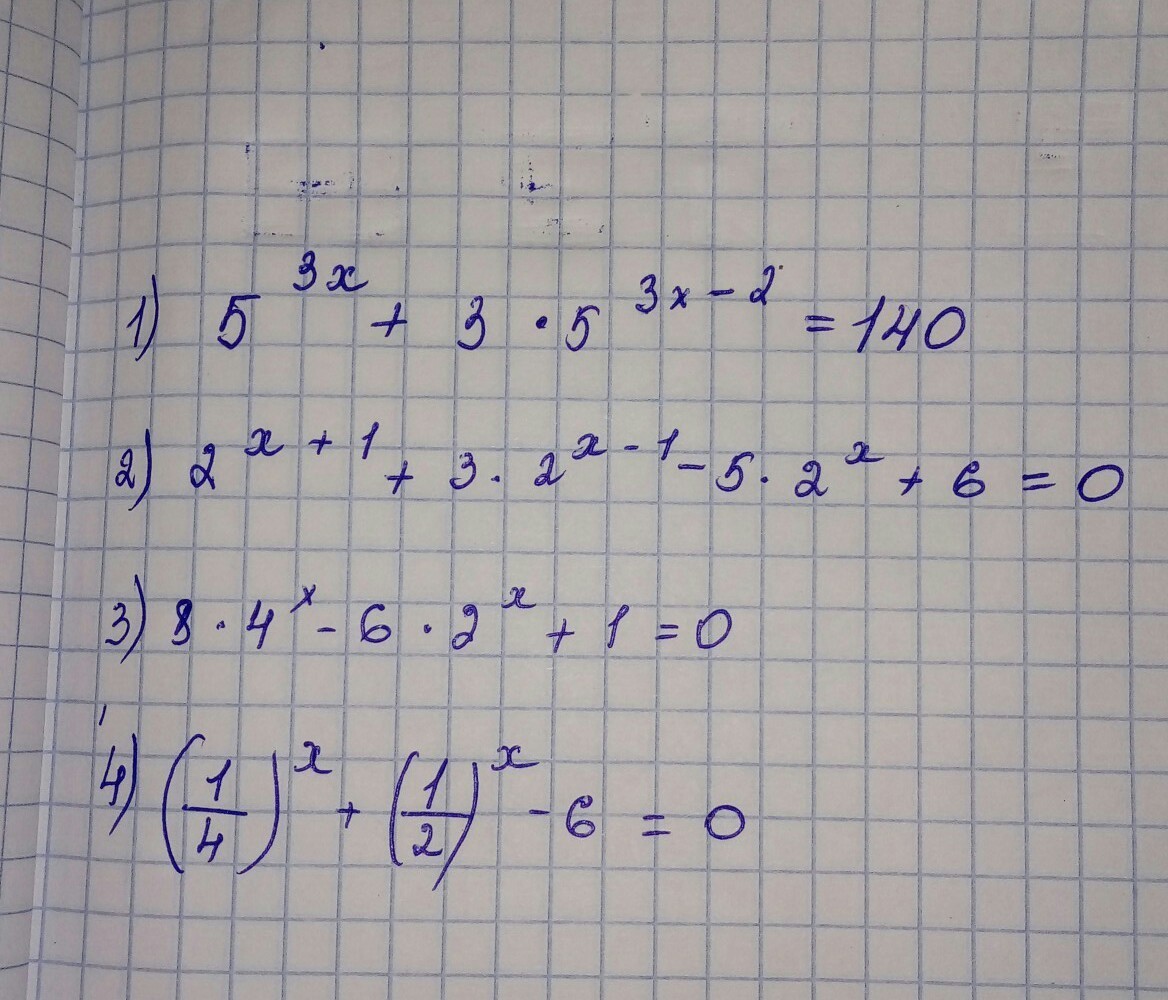 1) 5^{3x} + 3 · 5^{3x-2} = 140
2) 2^{x+1} + 3 · 2^{x-1} - 5 · 2^{x} + 6 = 0
3) 8 · 4^{x} - 6 · 2^{x} + 1 = 0
4) (1/4)^{x} + (1/2)^{x} - 6 = 0